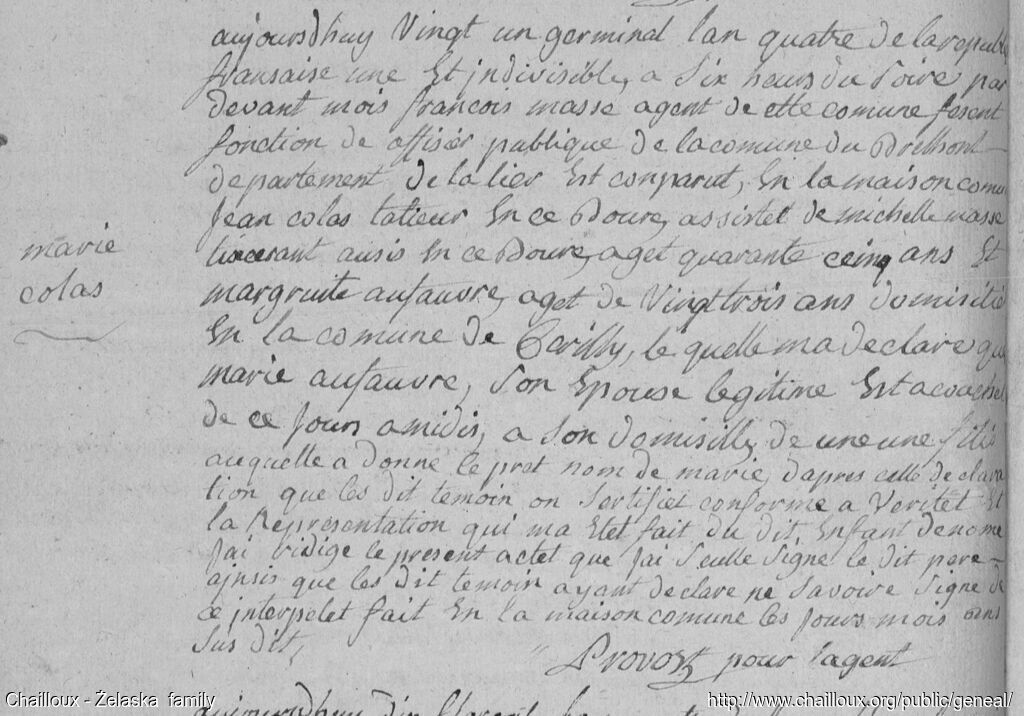 aujoursdhuy Vingt un germinal lan quatre de larepubli
fransaise une Et indivisible, a Six heurs du Soire par
devant mois francois masse agent de cette comune fesent
fonction de offisér publique de lacomune du Brethont
departement de la lier Est conparut, En la maison comu
Jean colas En ce assistet de michelle masse
ausis En ce aget quarante ceinq ans Et
margruite aufauvre, aget de Vingttrois ans domisilié
En la comune de Cerilly, le quelle ma declare que
marie aufauvre, Son Epouse legitime Est acouchee
de ce Jours amidis, a Son domisille, de une une fille
auquelle a donne le pret nom de marie, dapres celle declara
tion que les dit temoin on Sertifiet conforme a Veritet Et
la Représentation qui ma Etet fait du dit, Enfant denome
Jai ridige le present actet que Jai Seulle Signe le dit pere
ainsis que les dit temoin ayant declare ne Savoire Signe de
ce interpelet fait En la maison comune les Jours mois ans
Sus dit,
Provost pour lagent
marie
colas
aujoursdhuy
Chailloux - Želaska family
http://www.chailloux.org/public/geneal/